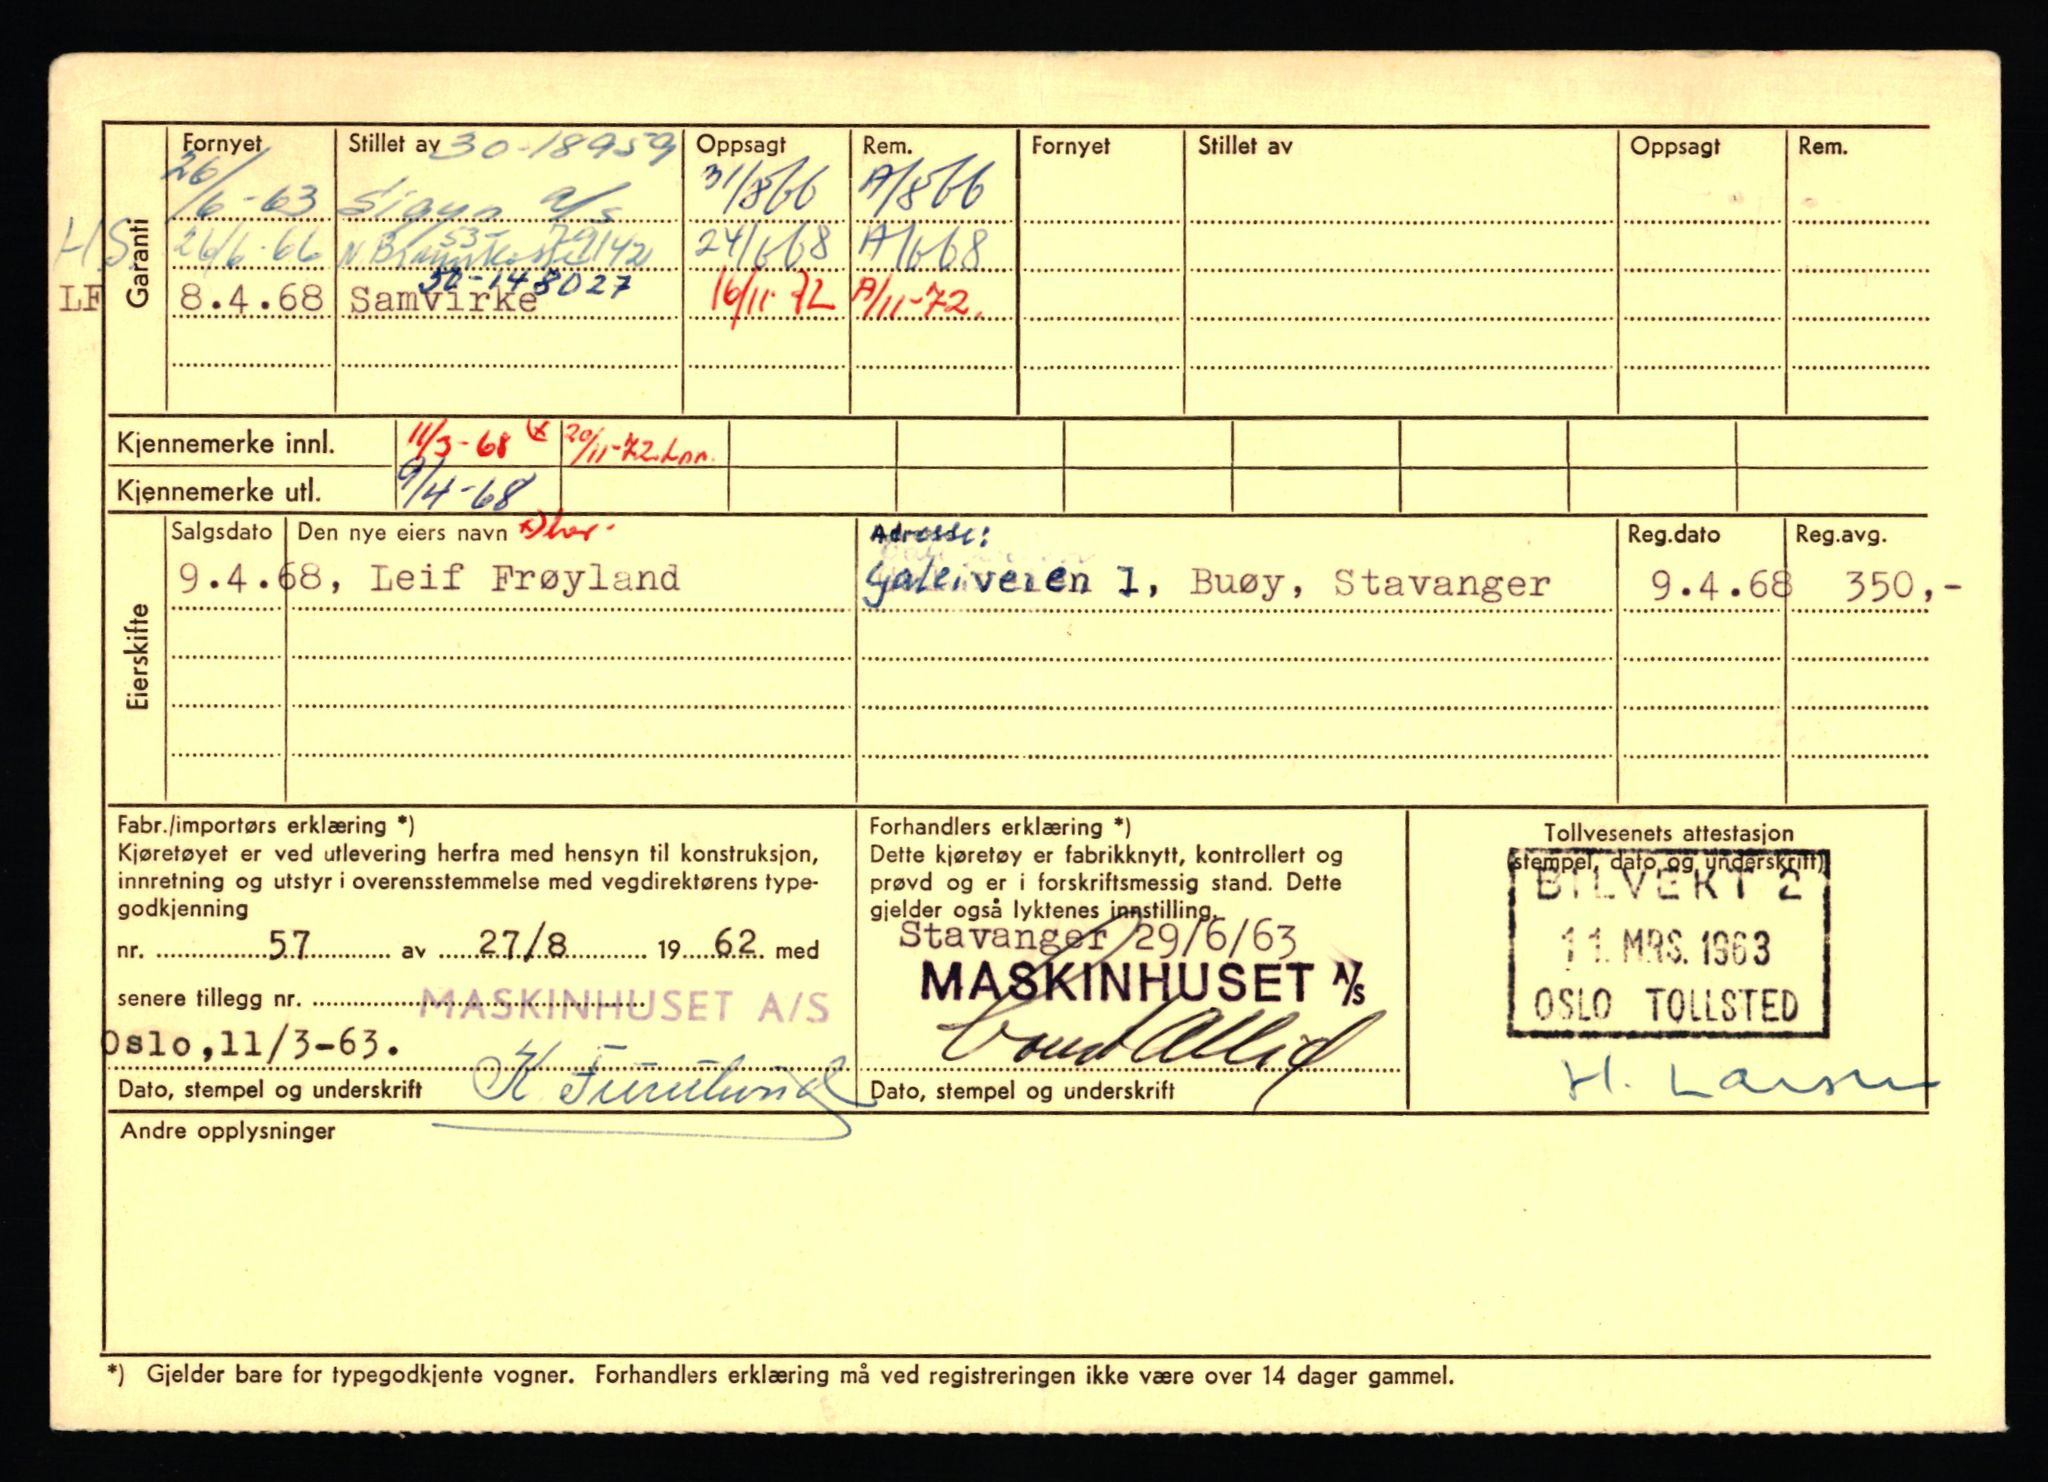 Garanti
Fornyet Stillet av 30-18959 Oppsagt Rem. Fornyet Stillet av Oppsagt Rem.
26/6-63 Sigyn a/s 31/8 66 A/8 66
H.S. 26/6-66 N. Brannkasse 53-79142 24/6 68 A/6 68
LF 8.4.68 Samvirke 30-148027 16/11-72 A/11-72.
Kjennemerke innl. 11/3-68 x 20/11-72.
Kjennemerke utl. 9/4-68
Eierskifte
Salgsdato Den nye eiers navn Adresse: Reg.dato Reg.avg.
9.4.68, Leif Frøyland Galeiveien 1, Buøy, Stavanger 9.4.68 350,-
Fabr./importørs erklæring *)
Kjøretøyet er ved utlevering herfra med hensyn til konstruksjon,
innretning og utstyr i overensstemmelse med vegdirektørens type-
godkjenning
nr. 57 av 27/8 19 62 med
senere tillegg nr.
MASKINHUSET A/S
Oslo, 11/3-63.
K Furulund
Dato, stempel og underskrift
Forhandlers erklæring *)
Dette kjøretøy er fabrikknytt, kontrollert og
prøvd og er i forskriftsmessig stand. Dette
gjelder også lyktenes innstilling.
Stavanger 29/6/63
MASKINHUSET A/S
Dato, stempel og underskrift
Tollvesenets attestasjon
(stempel, dato og underskrift)
BILVEKT 2
11. MRS. 1963
OSLO TOLLSTED
H. Larsen
Andre opplysninger
*) Gjelder bare for typegodkjente vogner. Forhandlers erklæring må ved registreringen ikke være over 14 dager gammel.